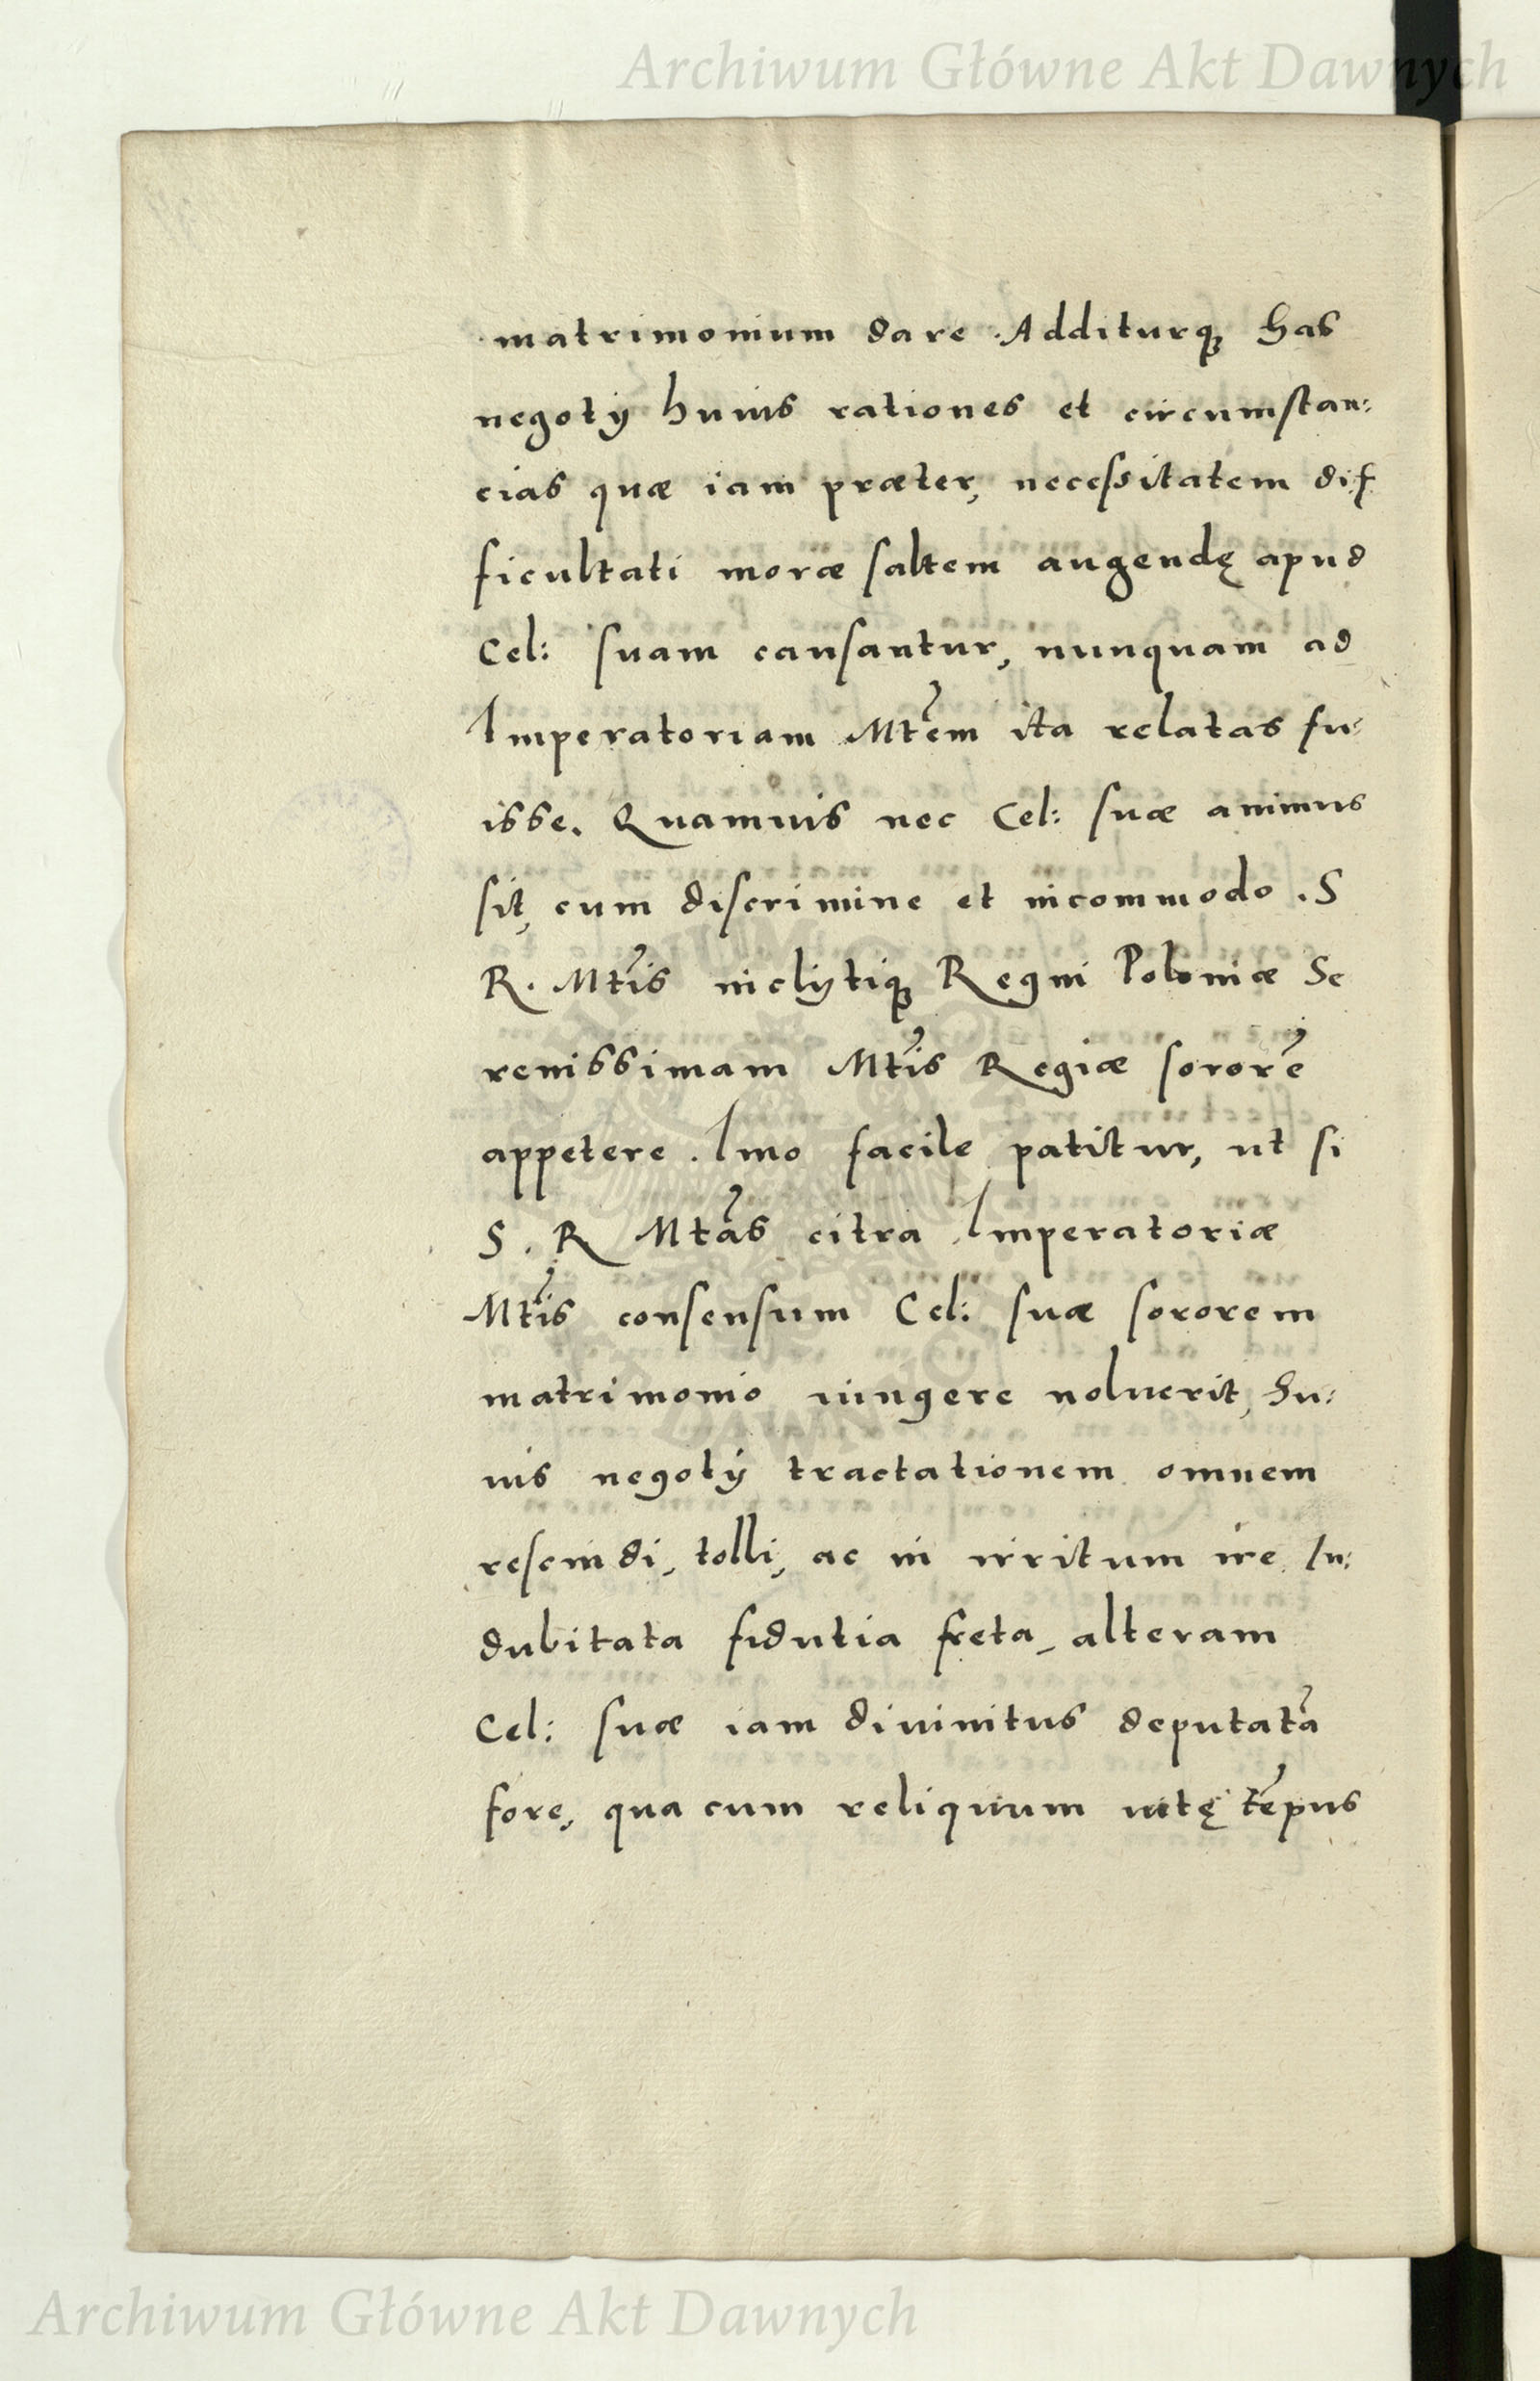 Archiwum Główne Akt Dawnych
matrimonium dare. Additurqꝫ has
negotÿ huius rationes et circumstan:
cias quæ iam præter, necessitatem dif
ficultati moræ saltem augendę apud
Cel: suam causantur, nunquam ad
Imperatoriam Mtẽm ita relatas fu:
isse. Quamuis nec Cel: suæ animus
sit, cum discrimine et incommodo. S
R. Mtĩs inclÿtiqꝫ Regni Poloniæ Se
renissimam Mtĩs Regiæ sororẽ
appetere. Imo facile patitur, ut si
S. R Mtãs citra Imperatoriæ
Mtĩs consensum Cel: suæ sororem
matrimonio iungere noluerit, hu:
ius negotÿ tractationem omnem
rescindi, tolli, ac in irritum ire. In:
dubitata fidutia freta, alteram
Cel: suæ iam diuinitus deputatã
fore, qua cum reliquum uitę tẽpus
Archiwum Główne Akt Dawnych